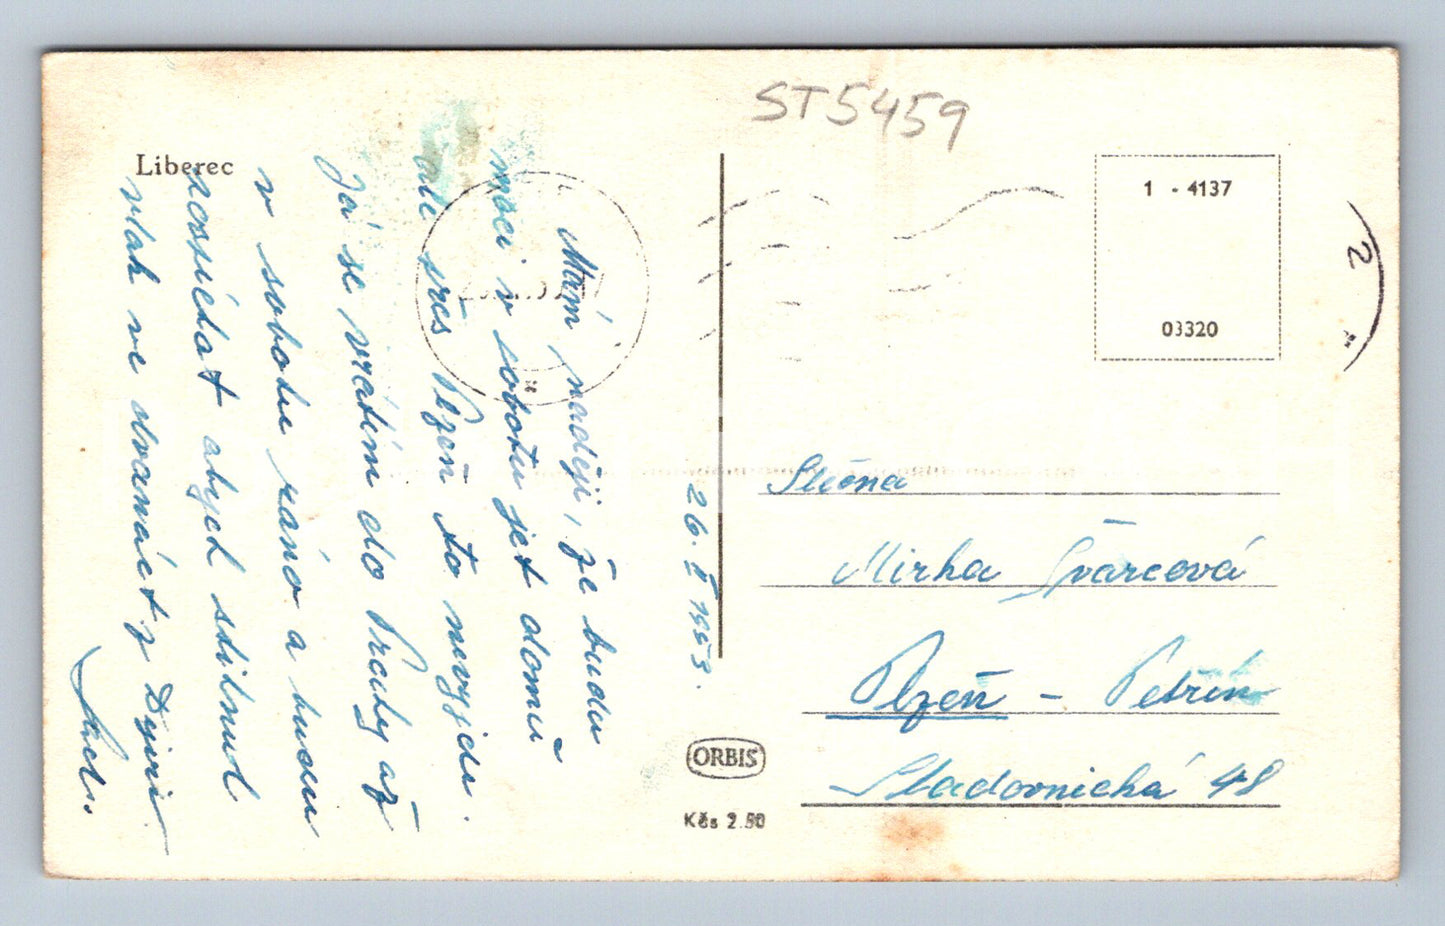 ST5459
Liberec
1 - 4137
03320
2
26. 1953.
Mám naději, že budu
moci v sobotu jet domů
ale přes Plzeň to nevyjde.
Já se vrátím do Prahy až
v sobotu ráno a budu
pospíchat abych stihnul
vlak ve dvanáct z
Slečna
Mirka Švarcová
Plzeň - Petřín
Sladovnická 48
ORBIS
Kčs 2.90